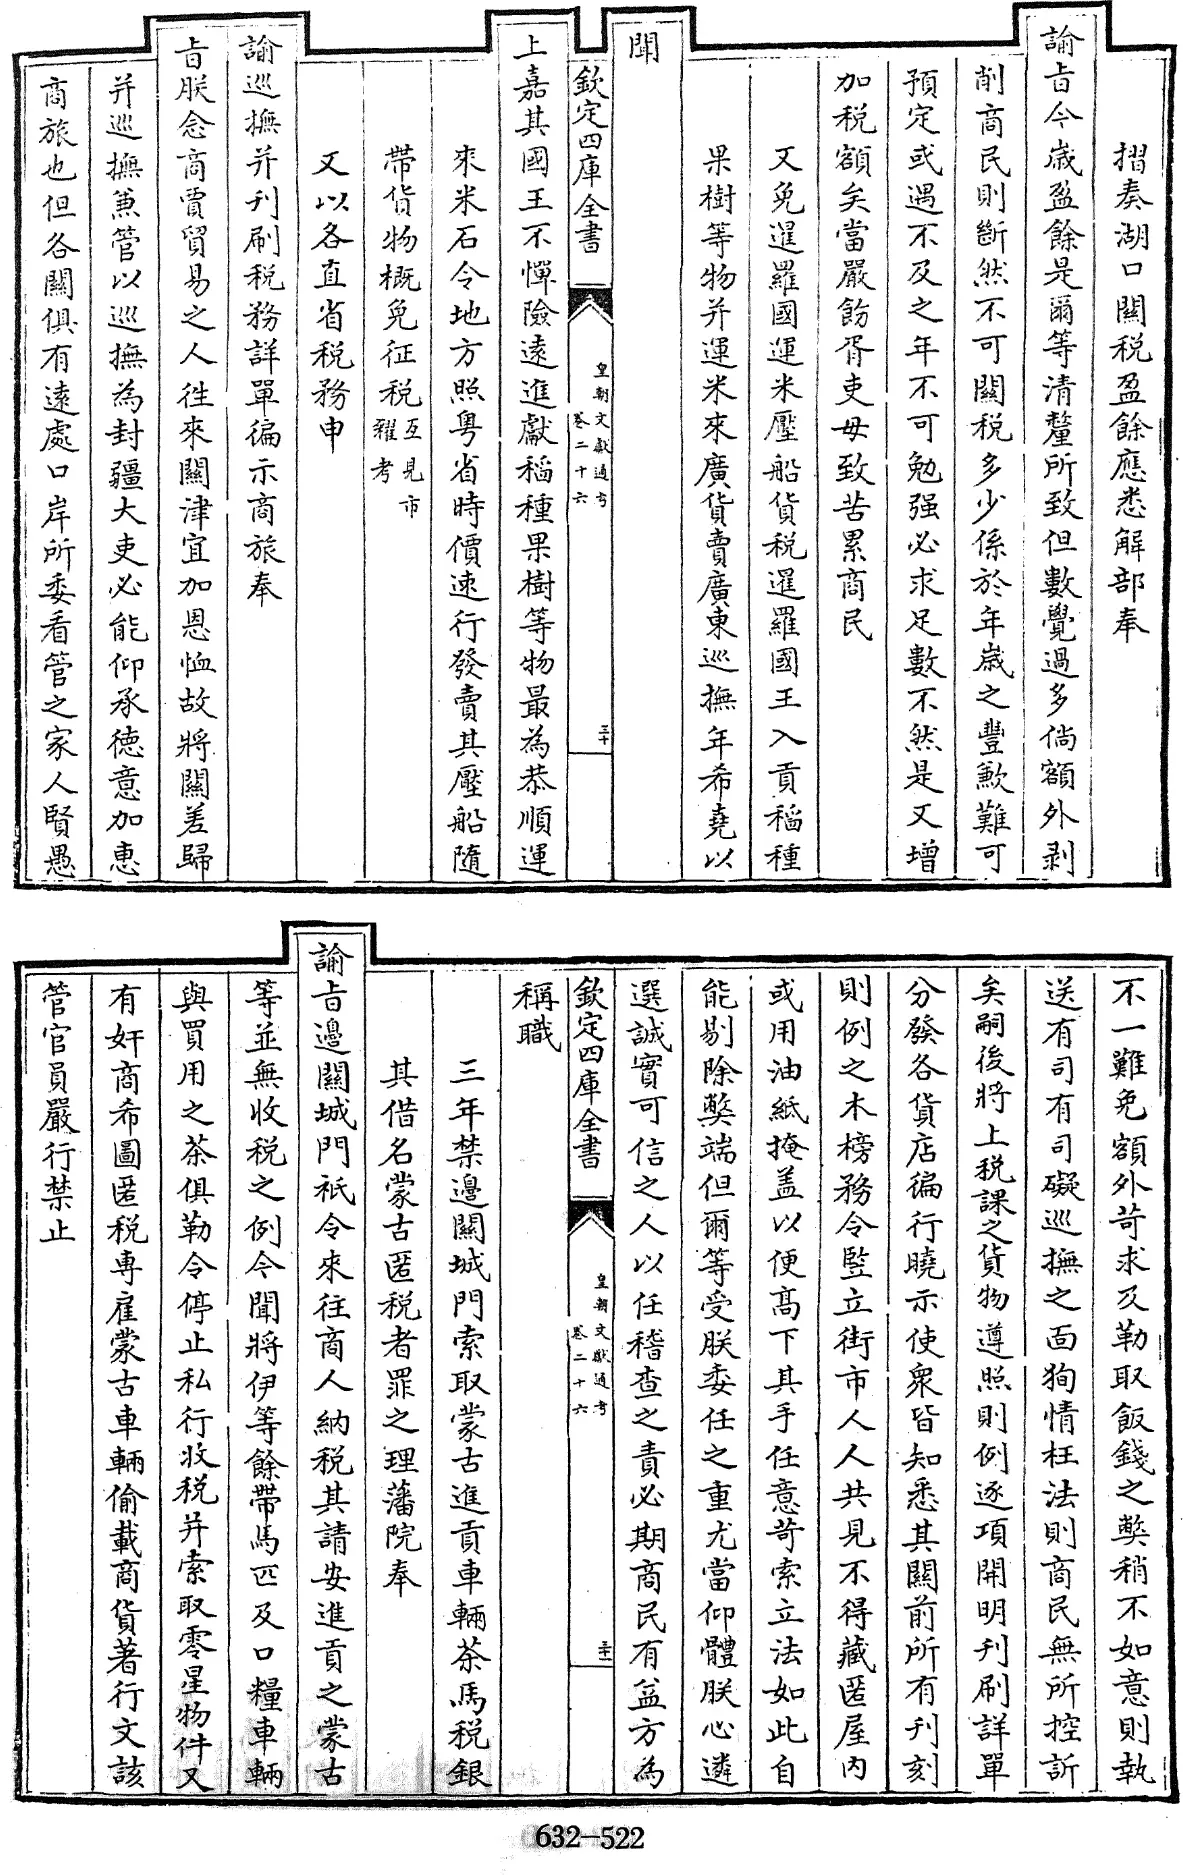 摺奏湖口關税盈餘應悉解部奉
諭㫖今歳盈餘是爾等清釐所致但數覺過多倘額外剥
削商民則斷然不可關税多少係於年歳之豐歉難可
預定或遇不及之年不可勉强必求足數不然是又增
加税額矣當嚴飭胥吏毋致苦累商民
又免暹羅國運米壓船貨税暹羅國王入貢稻種
果樹等物并運米來廣貨賣廣東巡撫年希堯以
聞
欽定四庫全書
皇朝文獻通考
卷二十六
三十
上嘉其國王不憚險遠進獻稻種果樹等物最為恭順運
來米石令地方照粤省時價速行發賣其壓船隨
帶貨物概免征税互見市
糴考
又以各直省税務申
諭巡撫并刋刷税務詳單徧示商旅奉
㫖朕念商賈貿易之人徃來關津宜加恩恤故將關差歸
并巡撫兼管以巡撫為封疆大吏必能仰承德意加惠
商旅也但各關俱有遠處口岸所委看管之家人賢愚
不一難免額外苛求及勒取飯錢之獘稍不如意則執
送有司有司礙巡撫之面狥情枉法則商民無所控訴
矣嗣後將上税課之貨物遵照則例逐項開明刋刷詳單
分發各貨店徧行曉示使衆皆知悉其關前所有刋刻
則例之木榜務令竪立街市人人共見不得藏匿屋内
或用油紙掩盖以便髙下其手任意苛索立法如此自
能剔除獘端但爾等受朕委任之重尤當仰體朕心遴
選誠實可信之人以任稽查之責必期商民有益方為
欽定四庫全書
皇朝文獻通考
卷二十六
三十一
稱職
三年禁邊關城門索取蒙古進貢車輛茶馬税銀
其借名蒙古匿税者罪之理藩院奉
諭㫖邊關城門祇令來往商人納税其請安進貢之蒙古
等並無收税之例今聞將伊等餘帶馬匹及口糧車輛
與買用之茶俱勒令停止私行收税并索取零星物件又
有奸商希圖匿税専雇蒙古車輛偷載商貨著行文該
管官員嚴行禁止
632-522